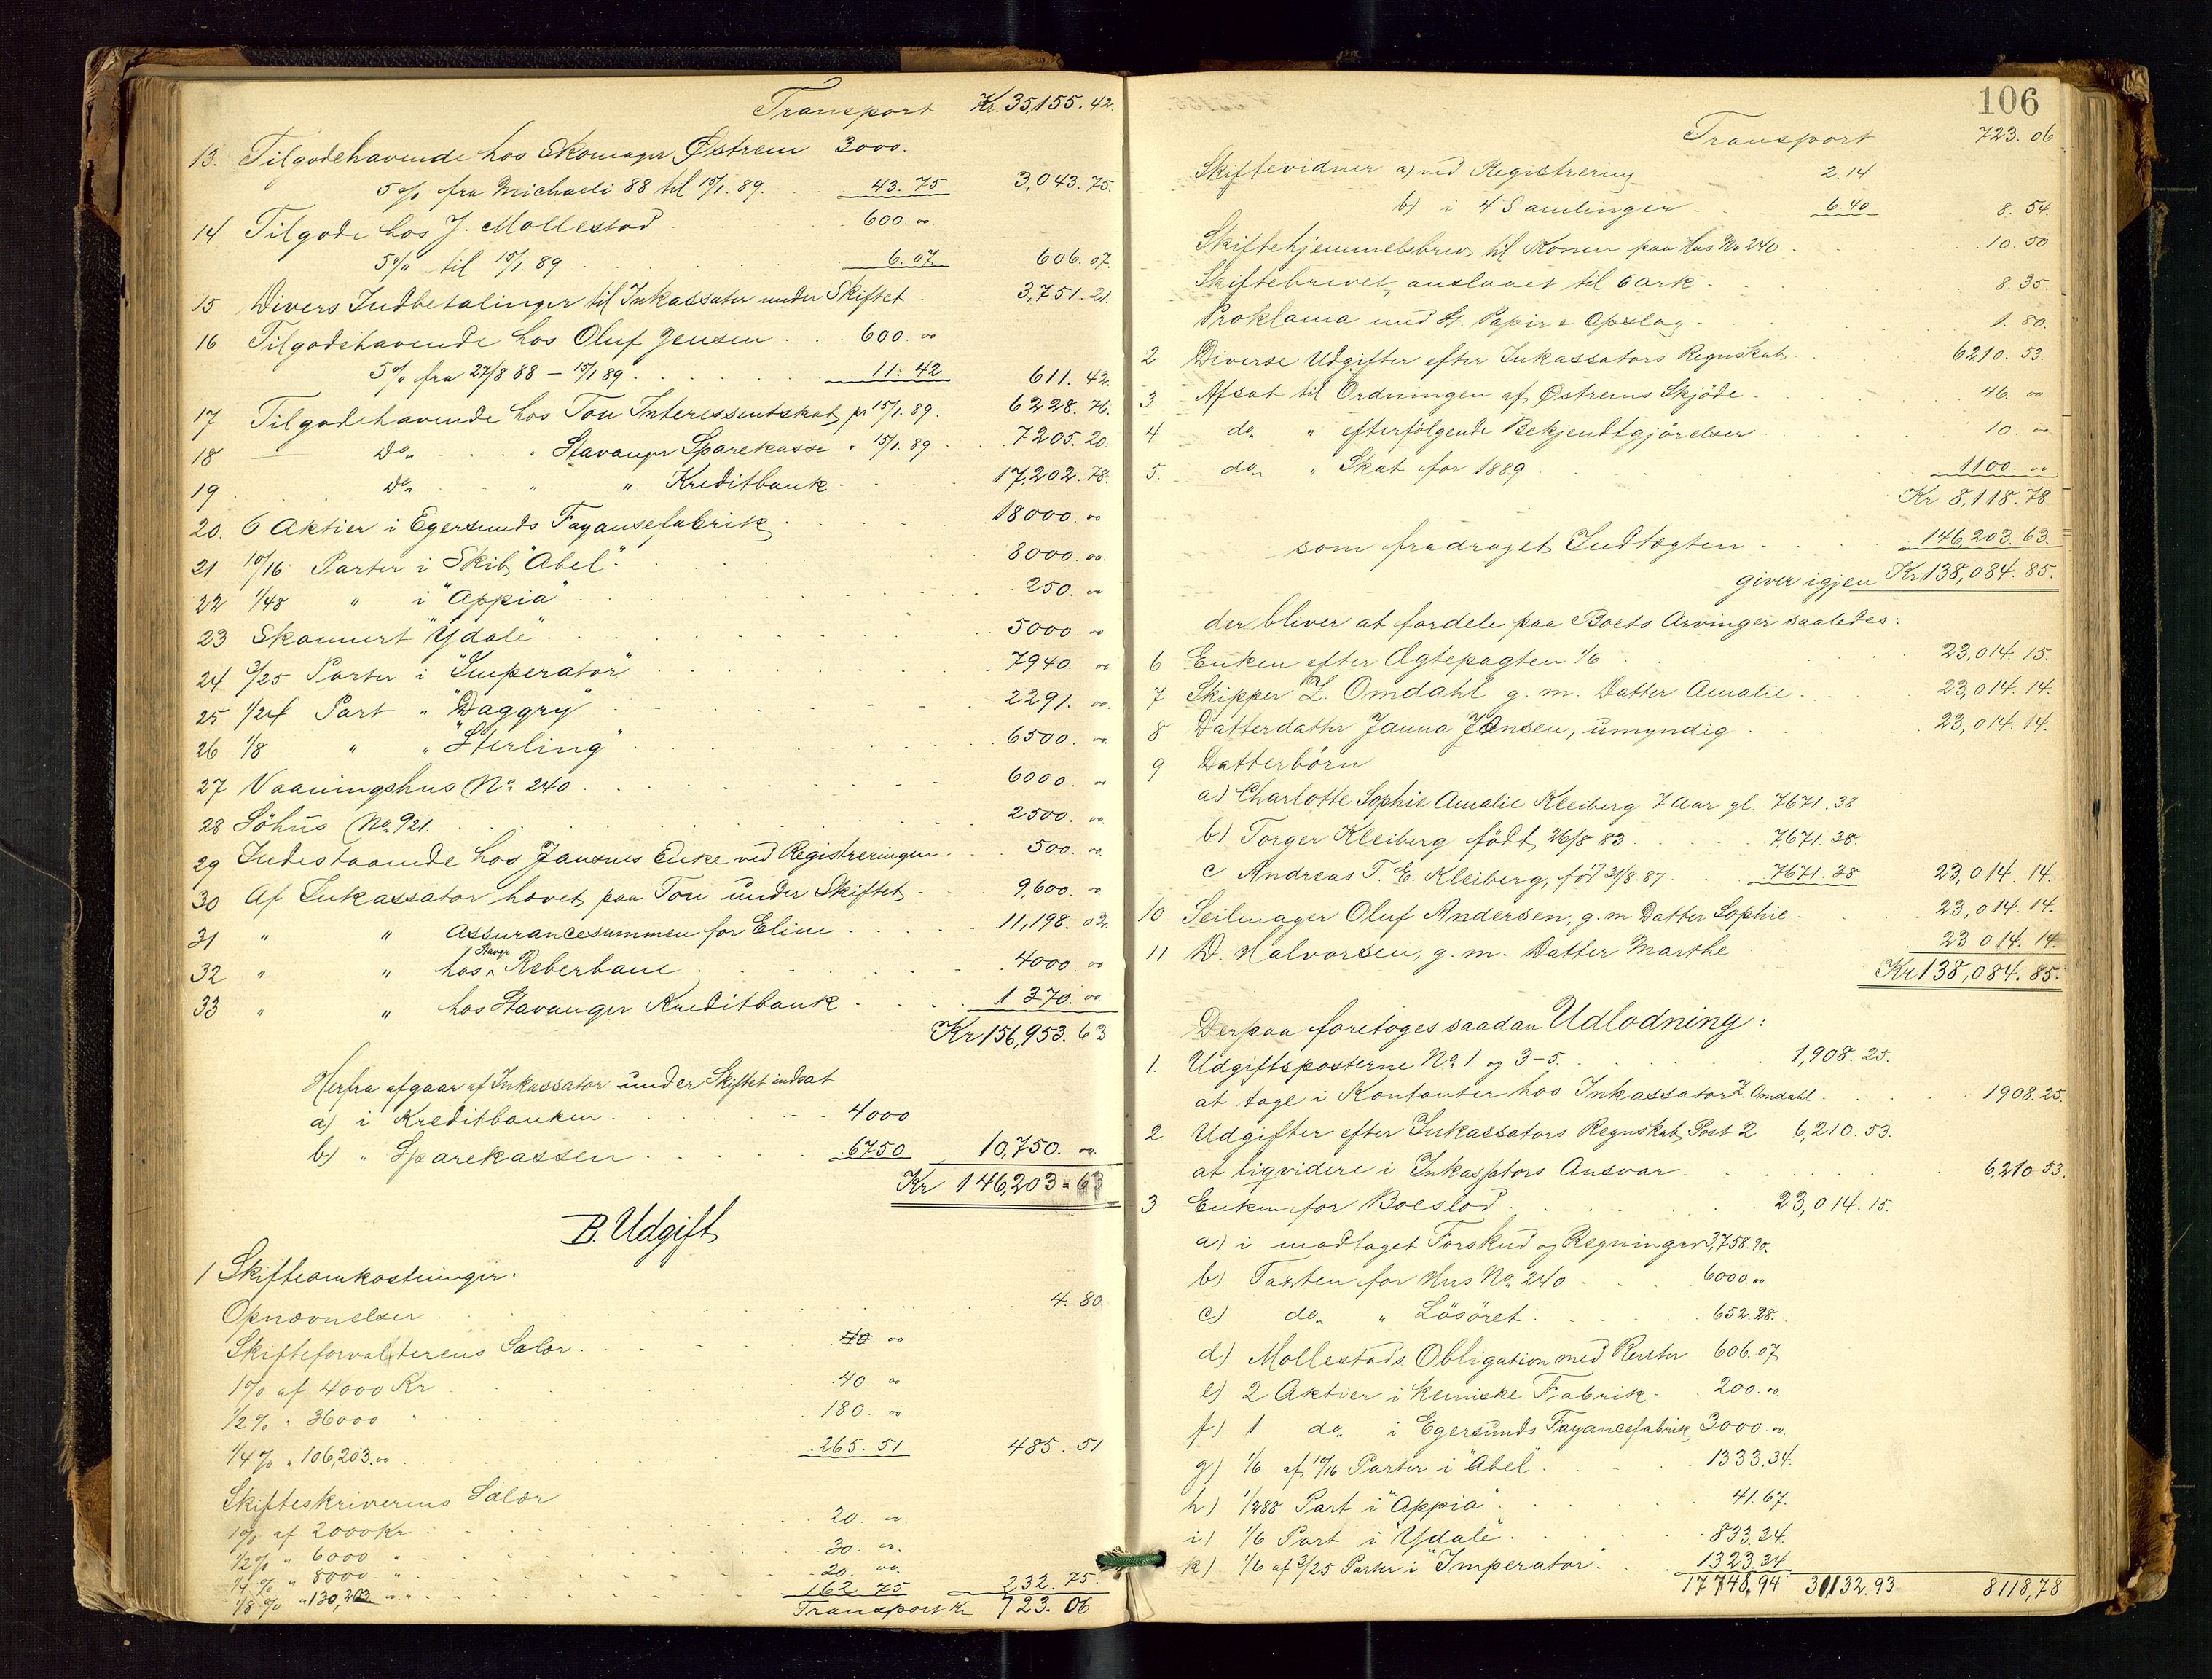 Transport Kr. 35,155.42.
13. Tilgodehavende hos Skomager Østrem 3000.
5% fra Michaeli 88 til 15/1.89. 43.75 3,043.75.
14 Tilgode hos J. Mollestad 600.00
5% til 15/1.89 6.07 606.07.
15 Divers Indbetalinger til Inkassator under Skiftet 3,751.21.
16 Tilgodehavende hos Oluf Jensen 600.00
5% fra 27/8 88 – 15/1 89. 11.42 611.42.
17 Tilgodehavende hos Tou Interessentskab pr 15/1.89. 6228.76.
18 Do. " Stavanger Sparekasse " 15/1.89 7205.20.
19. Do. " " Kreditbank 17,202.78.
20. 6 Aktier i Egersunds Fayansefabrik 18000.00
21 10/16 Parter i Skib "Abel" 8000.00.
22 1/48 " i "Appia" 250.00
23 Skonnert "Ydale" 5000.00
24 3/25 Parter i "Imperator" 7940.00
25 1/24 Part " "Daggry" 2291.00.
26 1/8 " " "Sterling" 6500.00.
27 Vaaningshus No. 240 6000.00
28 Söhus No. 921. 2500.00.
29 Indestaaende hos Jansens Enke ved Registreringen 500.00.
30 Af Inkassator hævet paa Tou under Skiftet 9,600.00.
31 " " Assurancesummen for Elim 11,198.02.
32 " " hos Stavgr Reberbane 4000.00
33 " " hos Stavanger Kreditbank 1370.00.
Kr 156,953.63
Herfra afgaar af Inkassator under Skiftet indsat
a) i Kreditbanken 4000
b) " Sparekassen 6750 10,750.00.
Kr 146,203.63
B. Udgift
1 Skifteomkostninger:
Opnævnelser 4.80.
Skifteforvalterens Salær 40.00
1% af 4000 Kr 40.00
1/2% " 36000 " 180.00
1/4% " 106,203.00 265.51 485.51
Skifteskriverens Salær
1% af 2000 Kr 20.00
1/2% " 6000 " 30.00.
1/4% " 8000 " 20.00.
1/8% " 130,203 " 162 75 232.75.
Transport Kr 723.06
106
Transport 723.06
Skiftevidner a) ved Registrering 2.14
b) i 4 Samlinger 6.40 8.54.
Skiftehjemmelsbrev til Konen paa Hus No 240 10.50
Skiftebrevet, anslaaet til 6 ark 8.35.
Proklama med St. Papir & Opslag 1.80.
2 Diverse Udgifter efter Inkassators Regnskab 6210.53.
3 Afsat til Ordningen af Østrems Skjöde 46.00
4 do. " efterfölgende Bekjendtgjörelser 10.00
5. do. " Skat for 1889 1100.00
Kr 8,118.78
som fradraget Indtægten 146,203.63.
giver igjen Kr 138,084.85.
der bliver at fordele paa Boets Arvinger saaledes:
6 Enken efter Ægtepagten 1/6 23,014.15.
7 Skipper Z. Omdahl g. m. Datter Amalie 23,014.14.
8 Datterdatter Janna Jensen, umyndig 23,014.14.
9 Datterbörn
a) Charlotte Sophie Amalie Kleiberg 7 Aar gl. 7671.38
b) Torger Kleiberg födt 26/8 83 7,671.38.
c Andreas T. E. Kleiberg, föd 31/8.87 7671.38 23,014.14.
10 Seilmager Oluf Andersen, g. m Datter Sophie 23,014.14.
11 D. Halvorsen, g. m. Datter Marthe 23 014.14
Kr 138,084.85.
Derpaa foretoges saadan Udlodning:
1. Udgiftsposterne No 1 og 3–5. 1,908.25.
at tage i Kontanter hos Inkassator Z. Omdahl 1908.25.
2 Udgifter efter Inkassators Regnskab Post 2 6,210.53.
at ligvidere i Inkassators Ansvar 6,210 53.
3 Enken for Boeslod 23,014.15.
a) i modtaget Forskud og Regninger 3,758.90.
b) Taxten for Hus No. 240 6000.00
c) do. " Lösöret 652.28.
d) Mollestads Obligation med Renter 606.07
e) 2 Aktier i kemiske Fabrik 200.00.
f) 1 do. i Egersunds Fayancefabrik 3000.00.
g) 1/6 af 10/16 Parter i "Abel" 1333.34.
h) 1/288 Part i "Appia" 41.67.
i) 1/6 Part i "Ydale" 833.34.
k) 1/6 af 3/25 Parter i "Imperator" 1323.34
17748,94 31132.93 8118,78